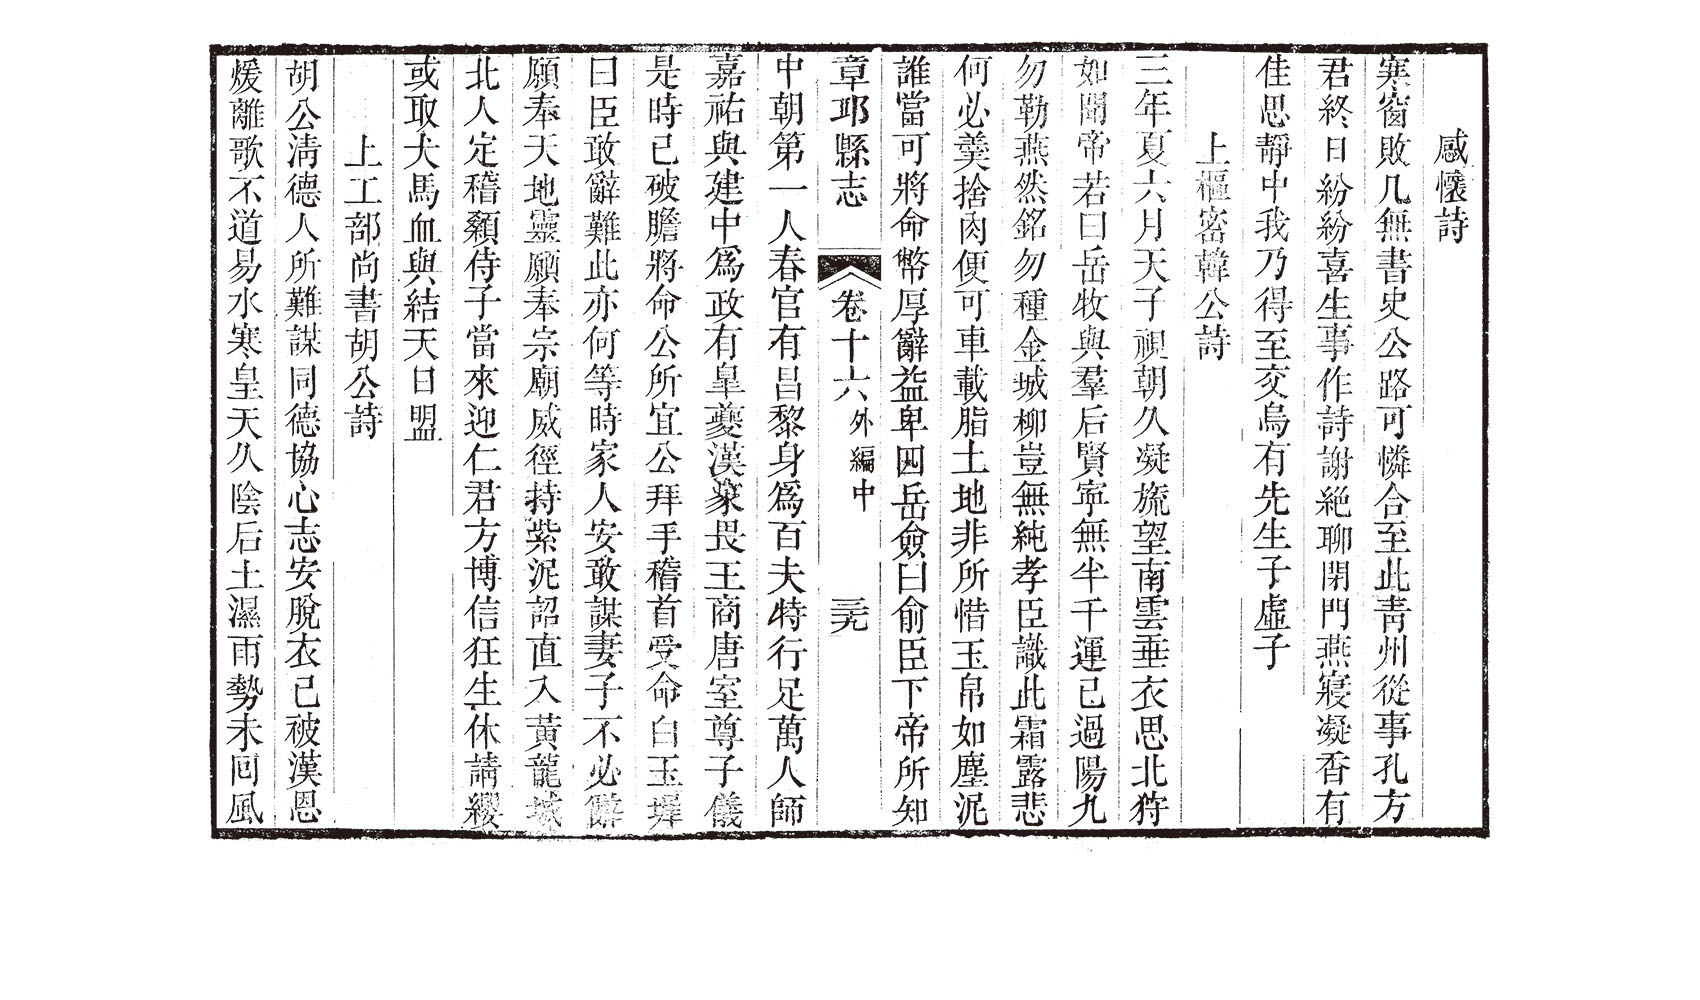 感懷詩
寒窗敗几無書史公路可憐合至此青州從事孔方
君終日紛紛喜生事作詩謝絶聊閉門燕寢凝香有
佳思靜中我乃得至交烏有先生子虛子
上樞密韓公詩
三年夏六月天子視朝久凝旒望南雲垂衣思北狩
如聞帝若曰岳牧與羣后賢寧無半千運已過陽九
勿勒燕然銘勿種金城柳豈無純孝臣識此霜露悲
何必羮捨肉便可車載脂土地非所惜玉帛如塵泥
誰當可將命幣厚辭益卑四岳僉曰俞臣下帝所知
章邱縣志 卷十六 外編中 三九
中朝第一人春官有昌黎身爲百夫特行足萬人師
嘉祐與建中爲政有臯夔漢家畏王商唐室尊子儀
是時已破膽將命公所宜公拜手稽首受命白玉墀
曰臣敢辭難此亦何等時家人安敢謀妻子不必辭
願奉天地靈願奉宗廟威徑持紫泥詔直入黃龍城
北人定稽顙侍子當來迎仁君方博信狂生休請纓
或取犬馬血與結天日盟
上工部尚書胡公詩
胡公清德人所難謀同德協心志安脫衣已被漢恩
煖離歌不道易水寒皇天久陰后土濕雨勢未回風